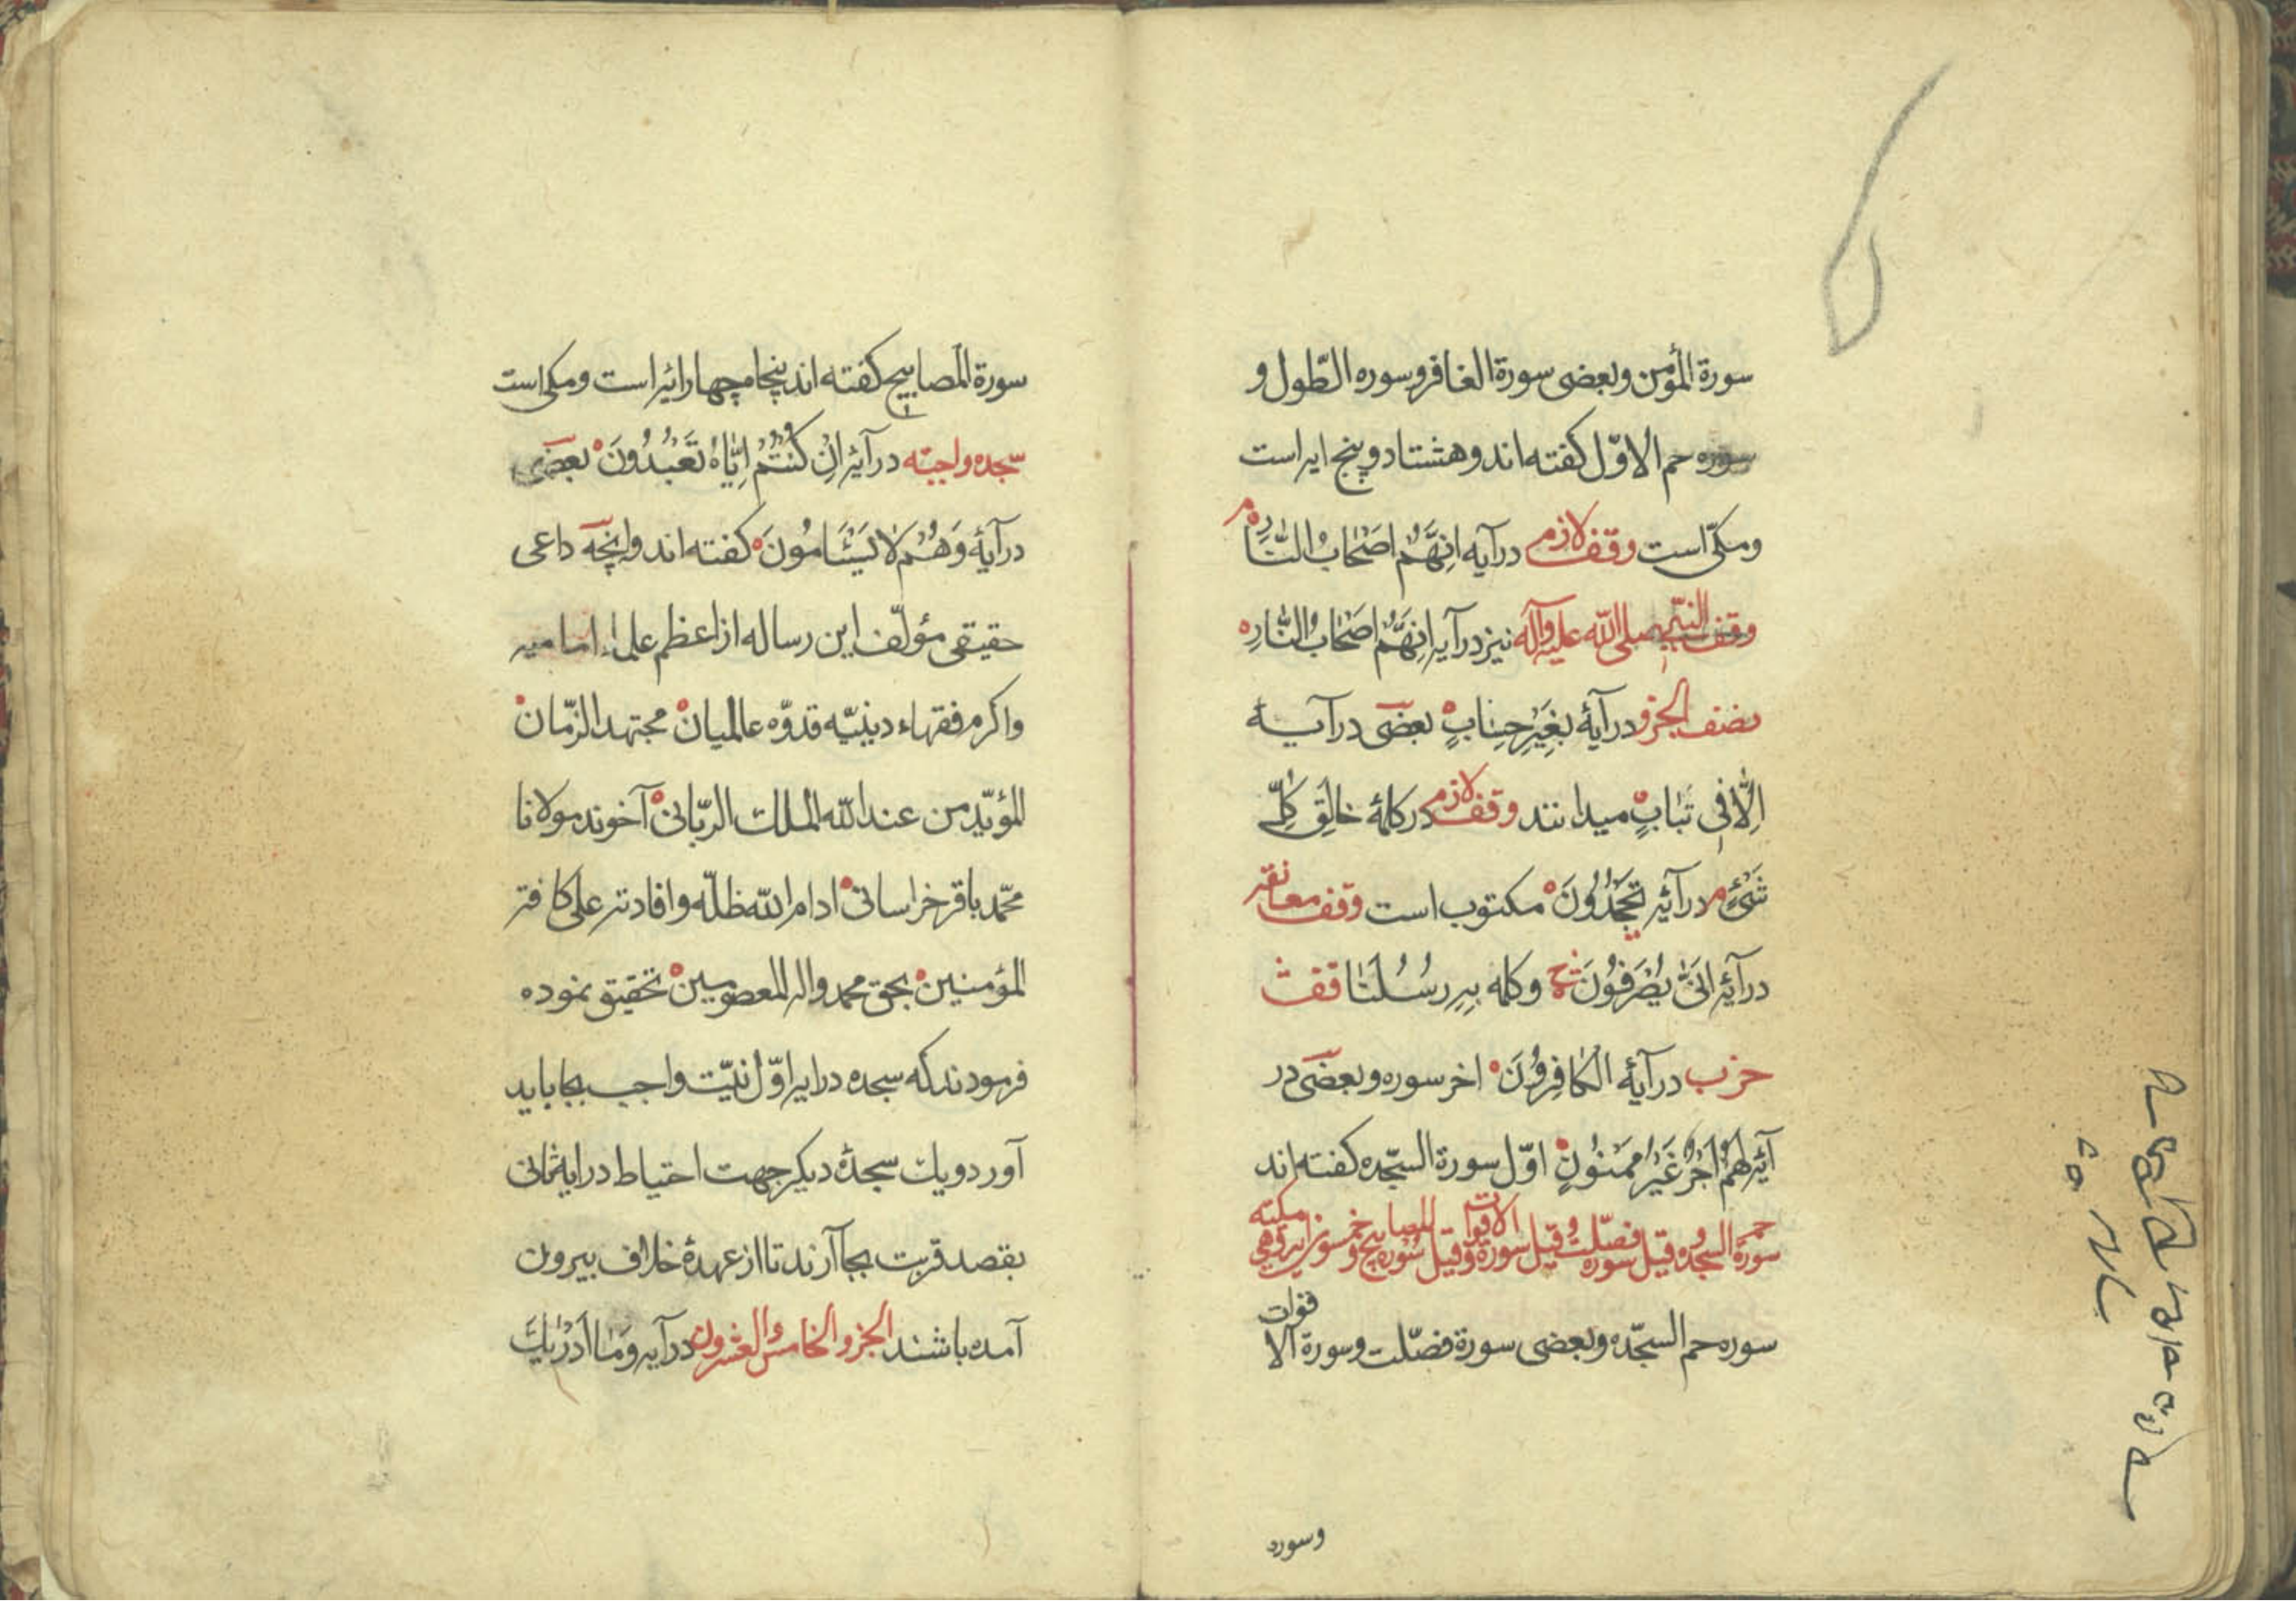 سورة المؤمن وبعضی سورة الغافر وسوره الطّول و
سوره حم الاوّل کفته اند وهشتاد و پنج ایه است
ومکّی است وقف لازم درآیه اِنَّهُمْ اَصْحابُ النّارِه م
وقف النبی صلی اللّه علیه وآله نیز درآیه اِنَّهُمْ اَصْحابُ النّارِه
نصف الجزو درآیهٔ بِغَیْرِ حِسابٍ بعضی درآیـه
اِلّا فی تَبابٍ میدانند وقف لازم درکلمهٔ خالِقُ کُلِّ
شَیْءٍ م درآیه تَجْحَدُونَ مکتوب است وقف معانقه
درآیه انّی یُصْرَفُونَ وکلمه بِهِ رُسُلَنا قف
حزب درآیهٔ الکافِرُونَ اخر سوره وبعضی در
آیه لَهُمْ اَجْرٌ غَیْرُ مَمْنُونٍ اوّل سورة السّجده کفته اند
سورة حم السجده وقیل سوره فصّلت وقیل سورة الاقوات وقیل سوره المصابیح وخمسون ایه وهی مکیّه
سوره حم السجّده وبعضی سورة فصّلت وسورة الاقوات
وسوره
سورة المصابیح کفته اند پنجاه چهار ایه است ومکی است
سجده واجبه درآیه اِنْ کُنْتُمْ اِیّاهُ تَعْبُدُونَ بعضی
درآیهٔ وَهُمْ لا یَسْئَامُونَ کفته اند وانچه داعی
حقیقی مؤلّف این رساله از اعظم علماء امامیه
واکرم فقهاء دینیّه قدوّه عالمیان مجتهد الزّمان
المؤیّد من عند اللّه الملک الربّانی آخوند مولانا
محمّد باقر خراسانی ادام اللّه ظلّه وافادته علی کافه
المؤمنین بحق محمد واله المعصومین تحقیق نموده
فرمودند که سجده در ایه اوّل نیّت واجب بجا باید
آورد ویک سجدهٔ دیکر جهت احتیاط در ایه ثانی
بقصد قربت بجا آرند تا از عهدهٔ خلاف بیرون
آمده باشند الجزو الخامس والعشرون درآیه وَما اَدْریٰکَ